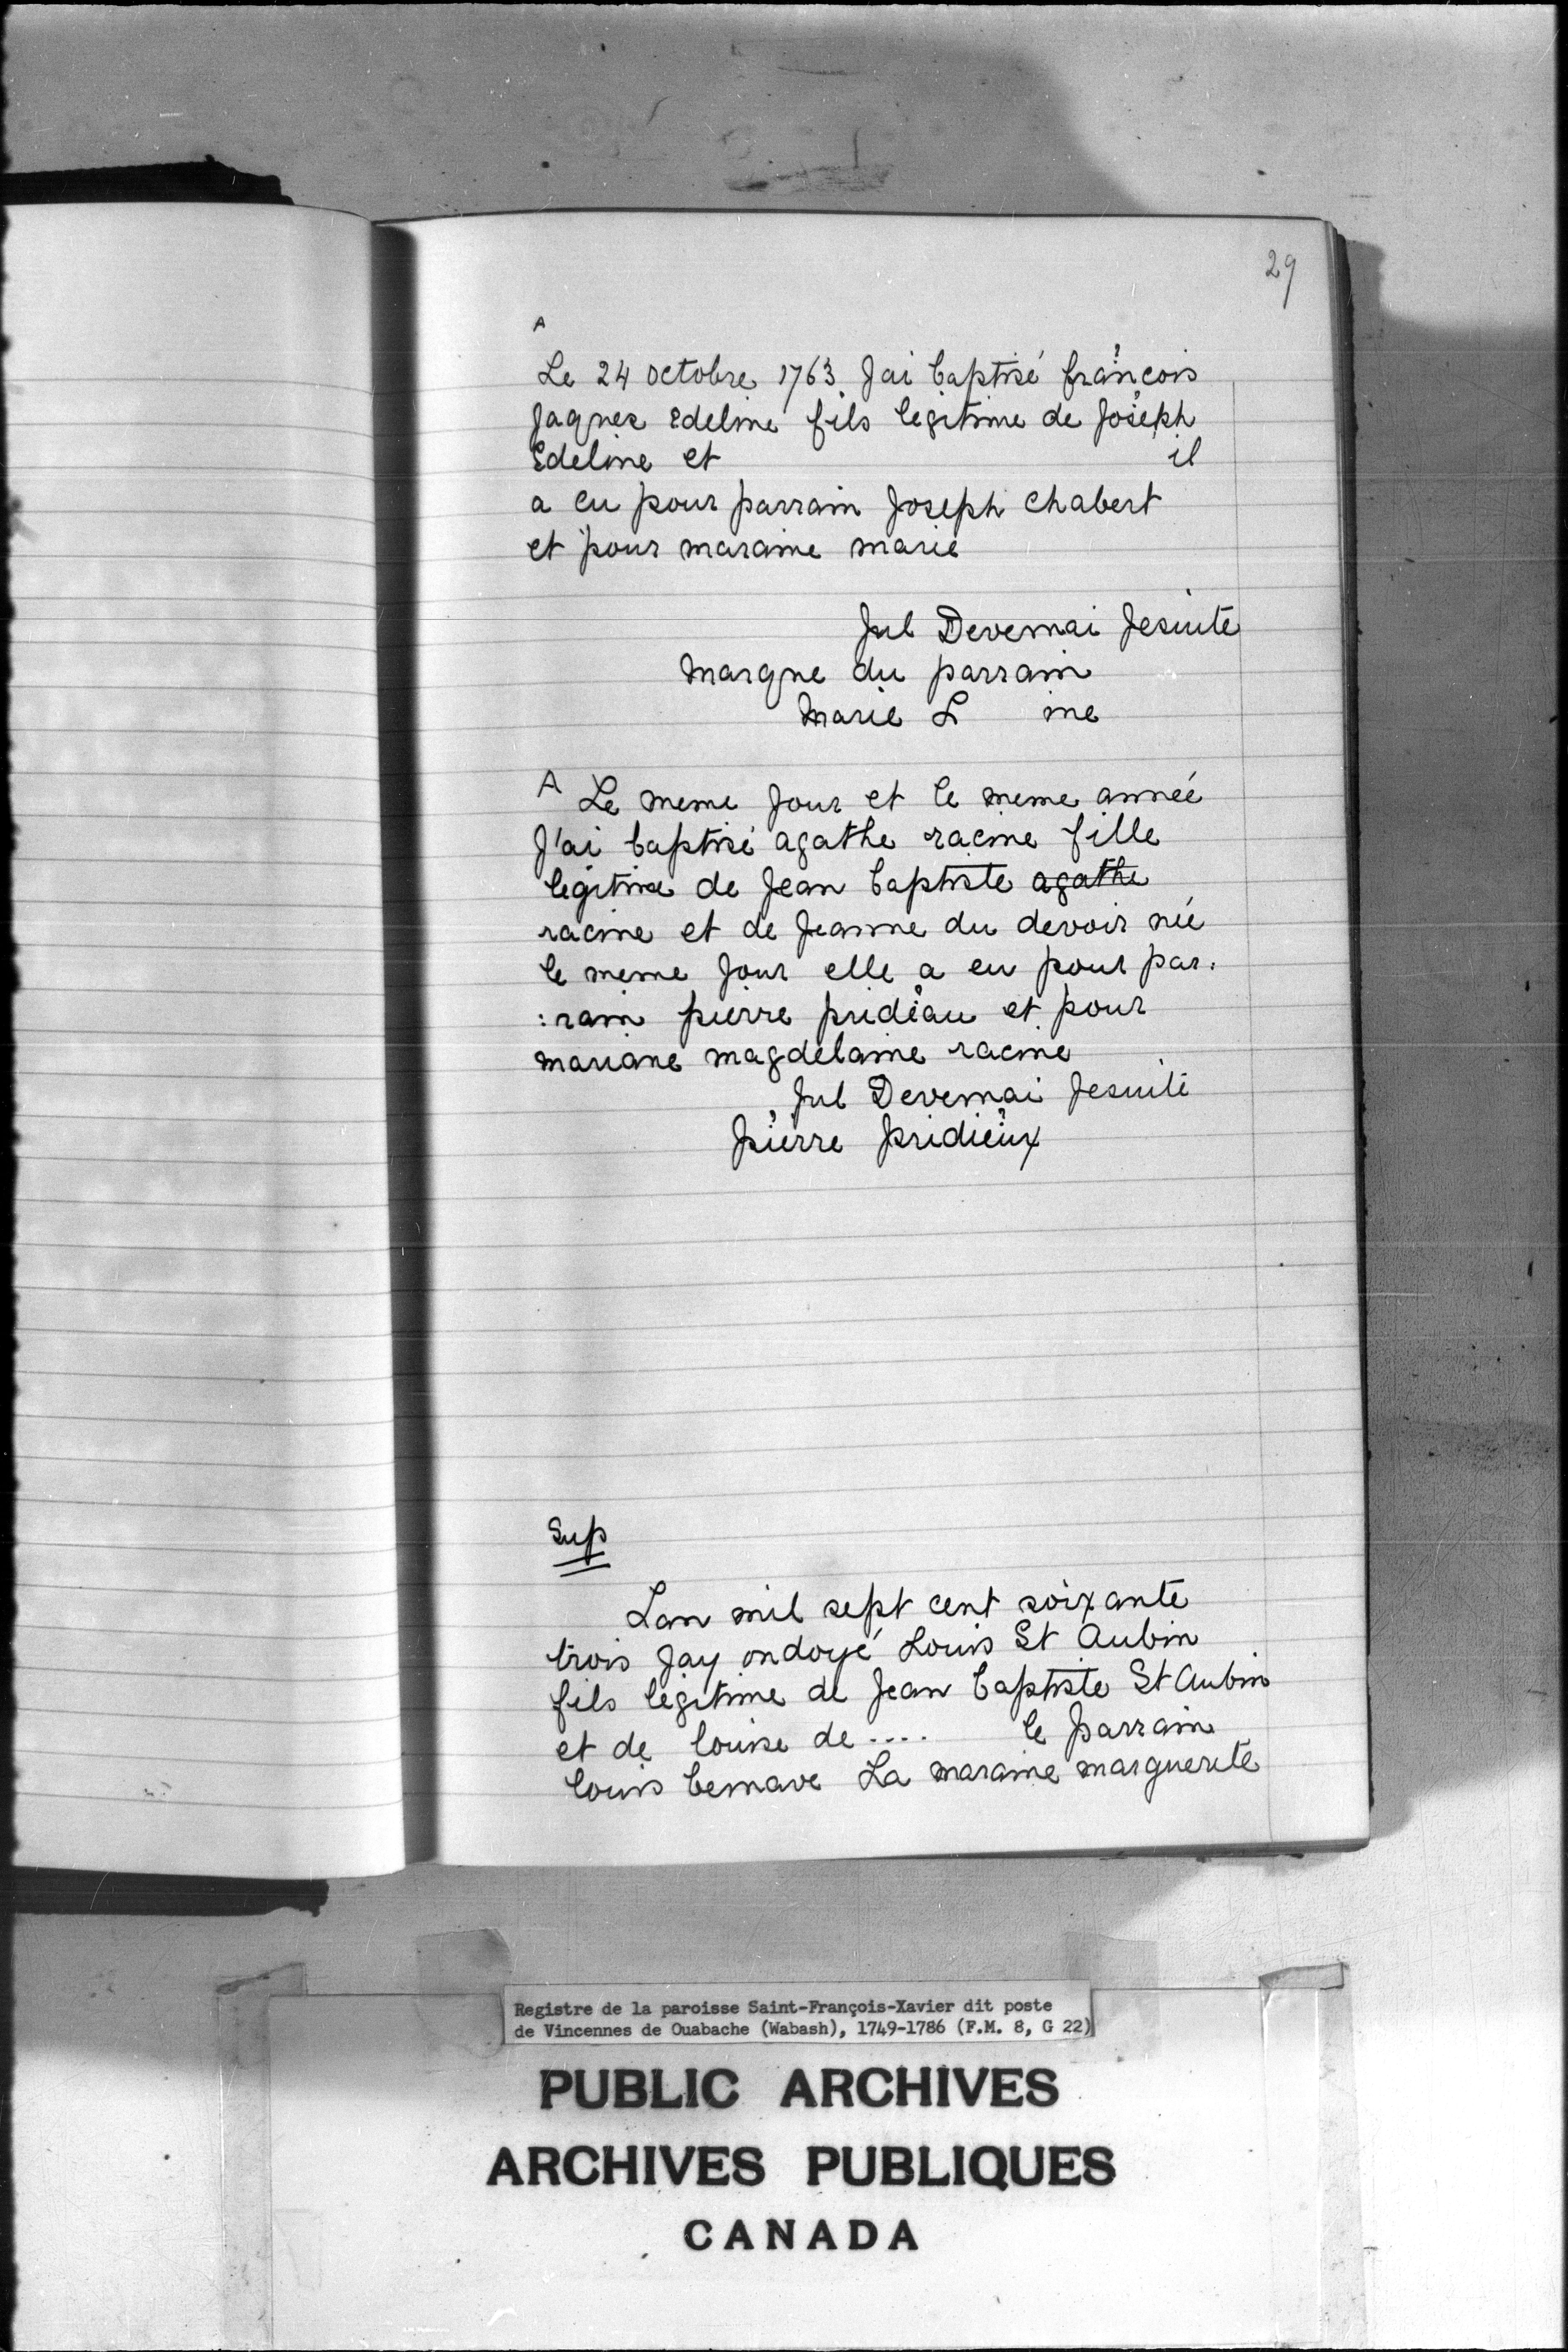 29
A
Le 24 octobre 1763 Jai baptisé francois
Jaques Edeline fils legitime de Joseph
Edeline et il
a eu pour parrain Joseph chabert
et pour maraine marie
Jul Devernai Jesuite
marque du parrain
Marie L ine
A Le meme Jour et le meme année
J'ai baptisé agathe racine fille
legitime de Jean baptiste agathe
racine et de Jeanne du devoir née
le meme Jour elle a eu pour par:
:rain pierre pridéau et pour
mariane magdelaine racine
Jul Devernai Jesuite
pierre pridieux
Sup
Lan mil sept cent soixante
trois Jay ondoyé Louis St Aubin
fils légitime de Jean baptiste St Aubin
et de louise de .... le parrain
louis bernave La maraine marguerite
Registre de la paroisse Saint-François-Xavier dit poste
de Vincennes de Ouabache (Wabash), 1749-1786 (F.M. 8, G 22)
PUBLIC ARCHIVES
ARCHIVES PUBLIQUES
CANADA